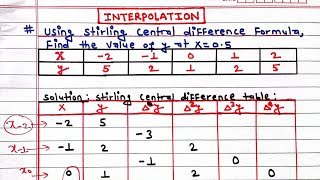 INTERPOLATION
# Using Stirling Central difference Formula,
Find the value of y at x=0.5
x -2 -1 0 1 2
y 5 2 1 2 5
Solution: Stirling central difference table:
x y Δy Δ²y Δ³y Δ⁴y
x-2 -2 5
-3
x-1 -1 2 2
-1 0
x0 0 1 2 0